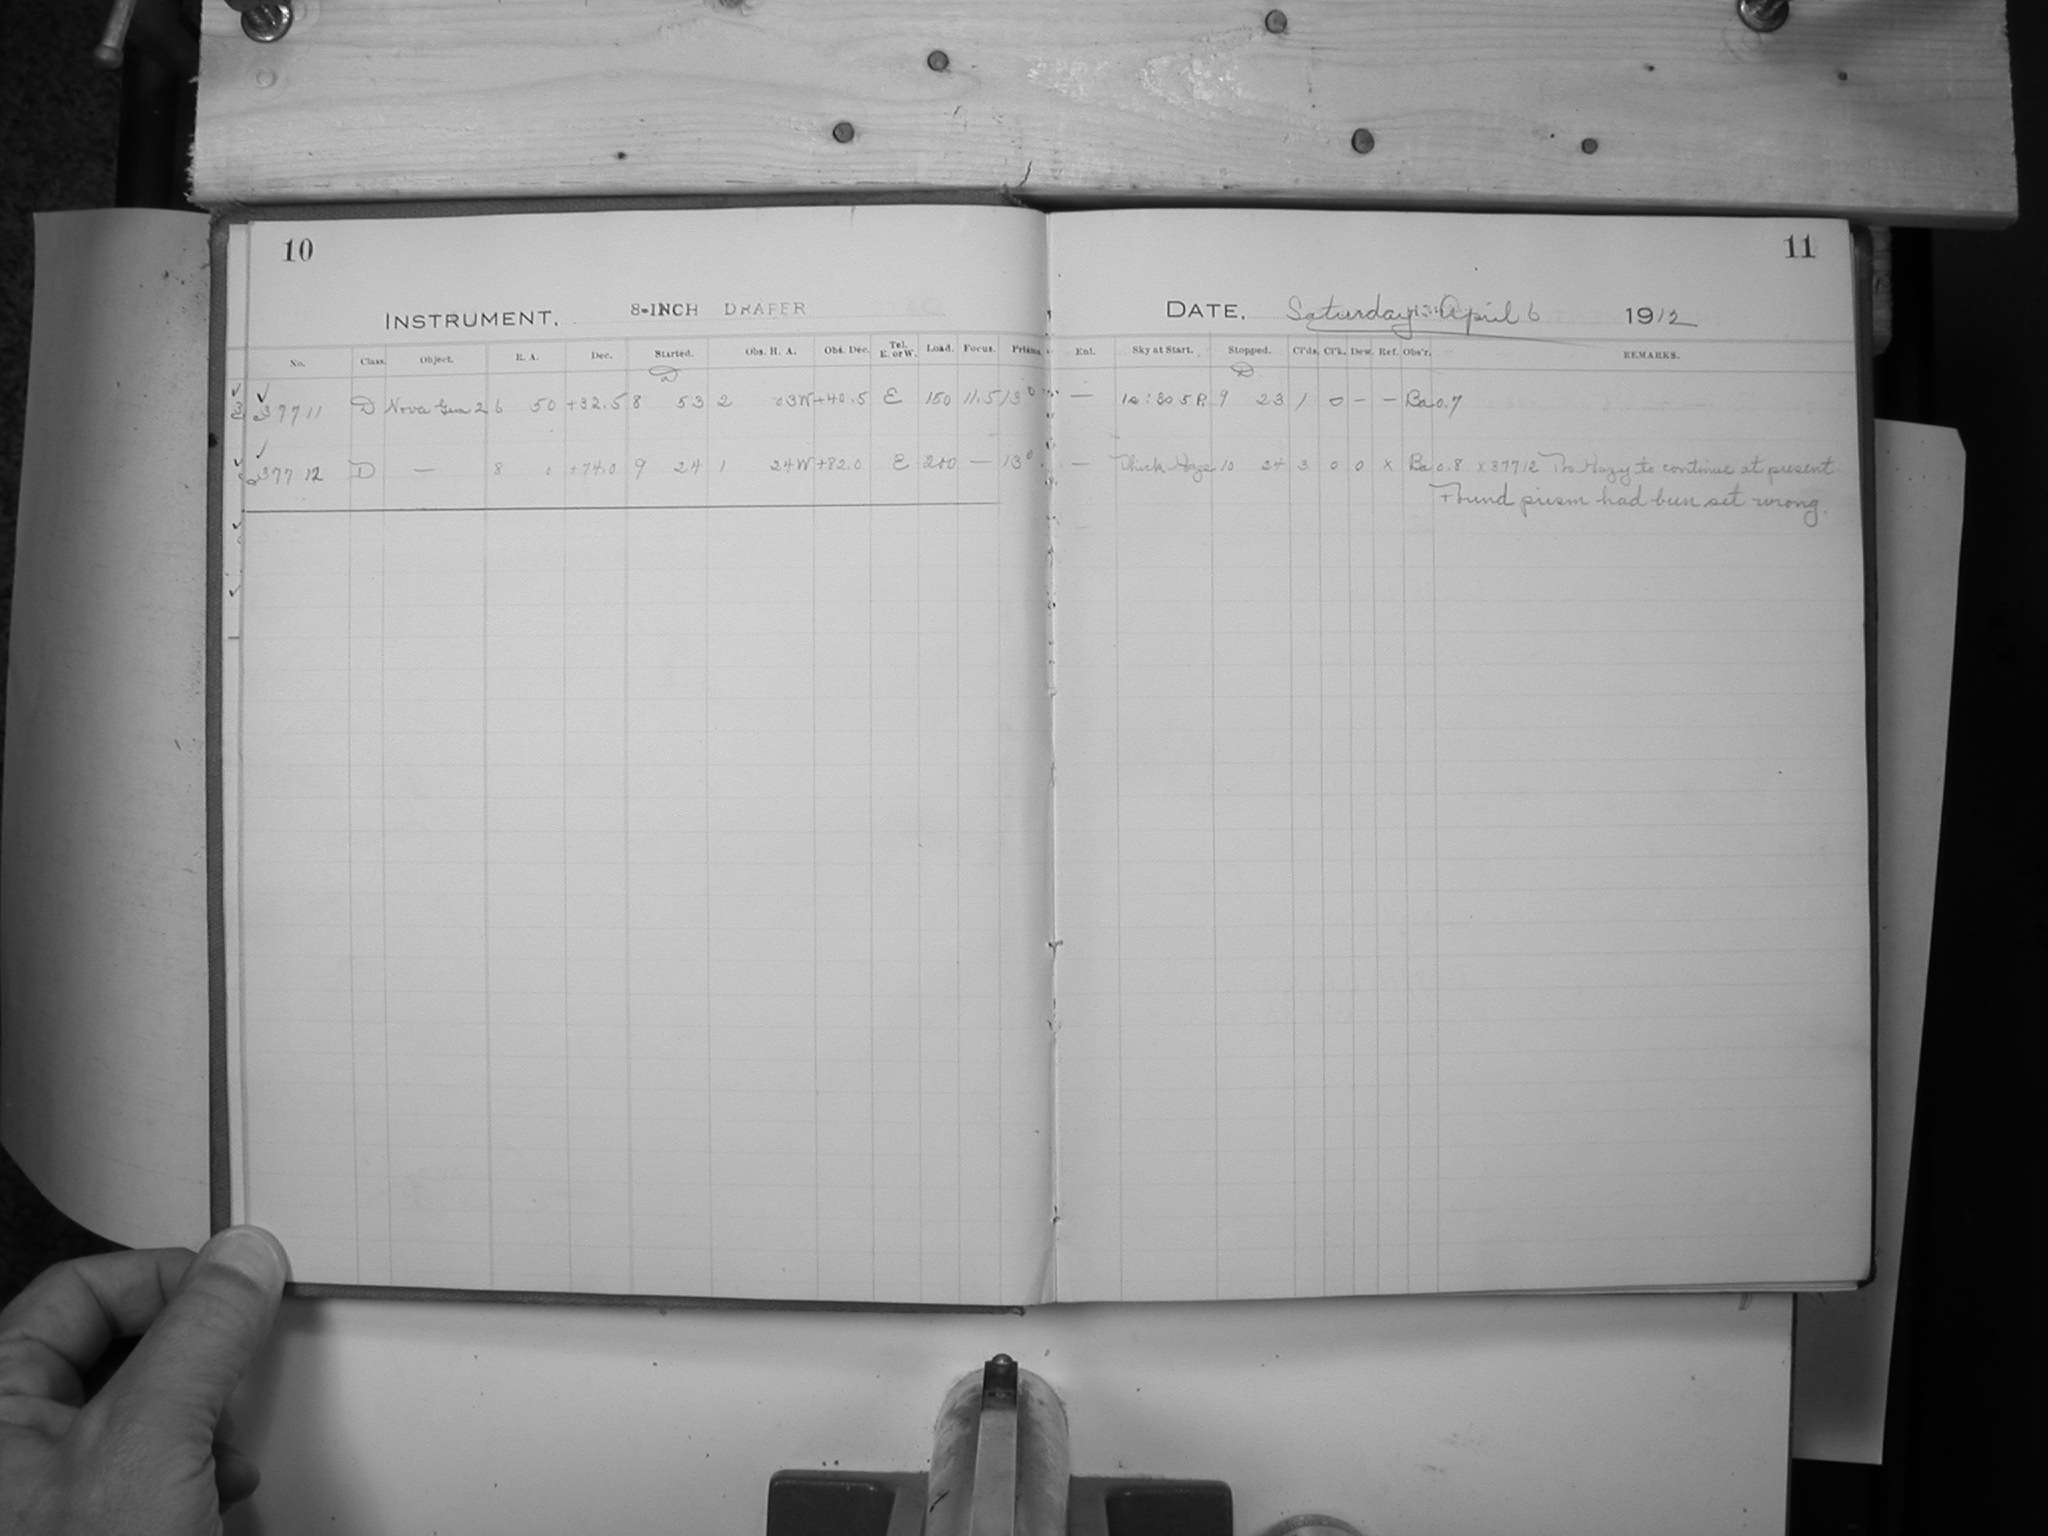 10
11
INSTRUMENT. 8-INCH DRAPER
DATE. Saturday April 6 1912
No. Class. Object. R. A. Dec. Started. Obs. H. A. Obs. Dec. Tel. E. or W. Load. Focus. Prisms. Enl. Sky at Start. Stopped. Cl'ds. Cl'k. Dew. Ref. Obs'r. REMARKS.
D D
✓ 37711 D Nova Gem 2 6 50 +32.5 8 53 2 03W +40.5 E 150 11.5 13° — 9 23 1 0 – – Ba 0.7
✓ 37712 D — 8 0 +74.0 9 24 1 24W +82.0 E — 13° — Thick Haze 10 24 3 0 0 x Ba 0.8 x 37712 Too Hazy to continue at present
Found prism had been set wrong.